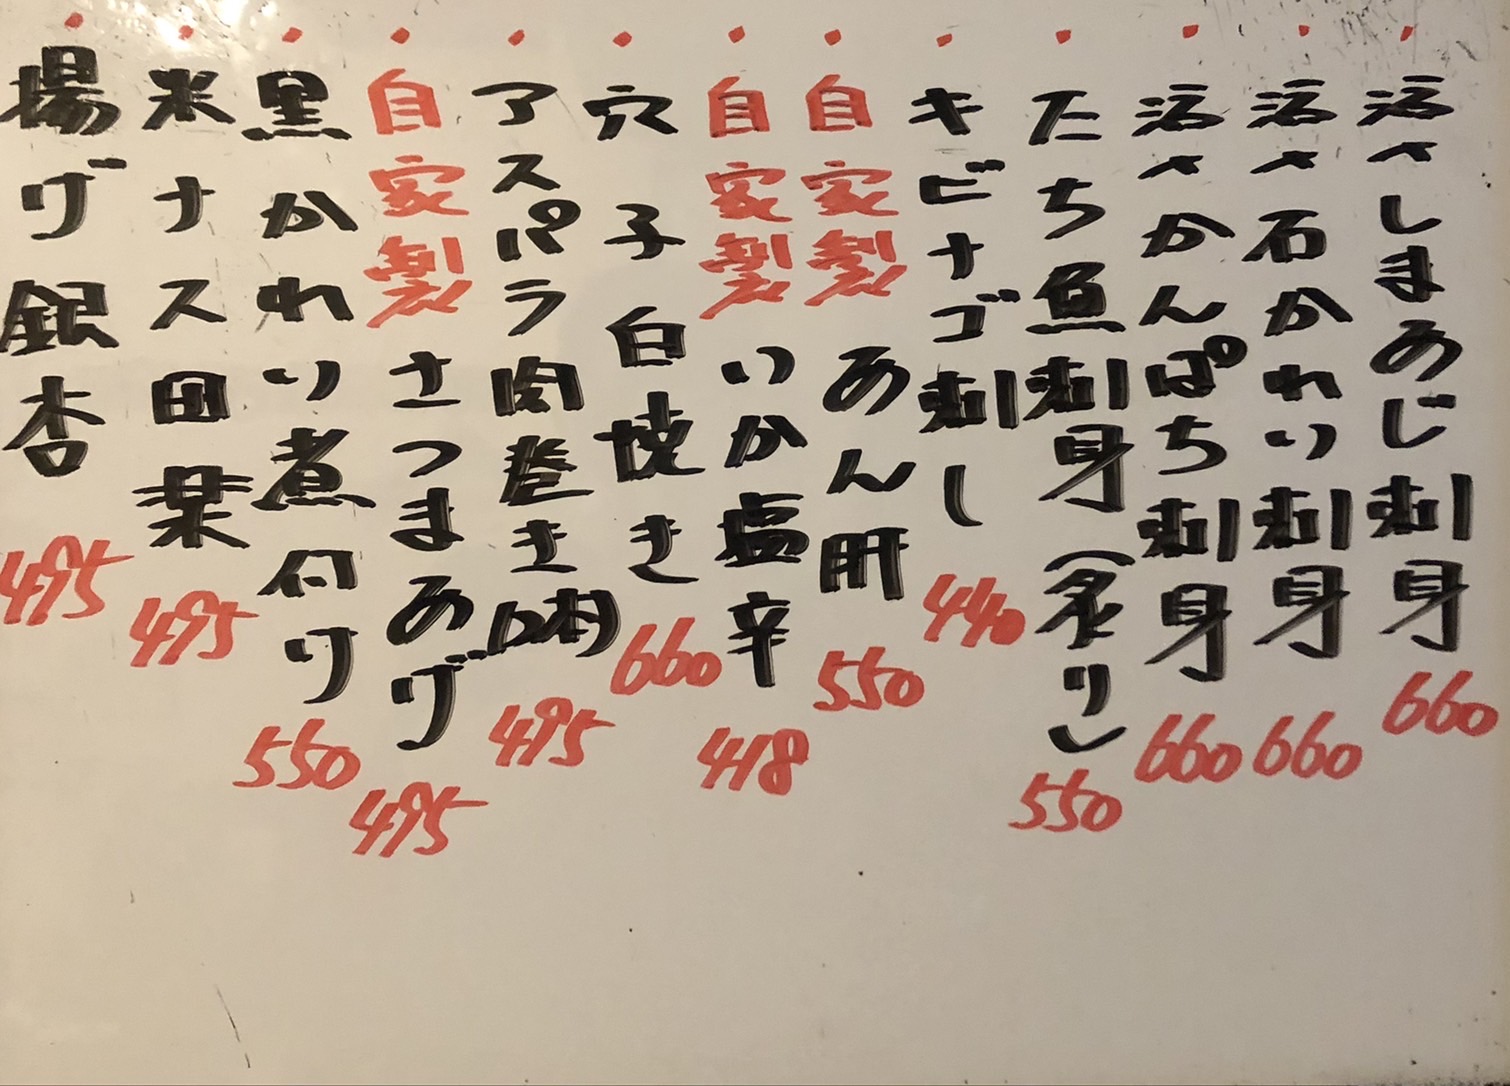 活〆しまあじ刺身 660
活〆石かれい刺身 660
活〆かんぱち刺身 660
たち魚刺身(炙り) 550
キビナゴ刺し 440
自家製 あん肝 550
自家製 いか塩辛 418
穴子白焼き 660
アスパラ肉巻き 495
自家製 さつまあげ 495
黒かれい煮付け 550
米ナス田楽 495
揚げ銀杏 495